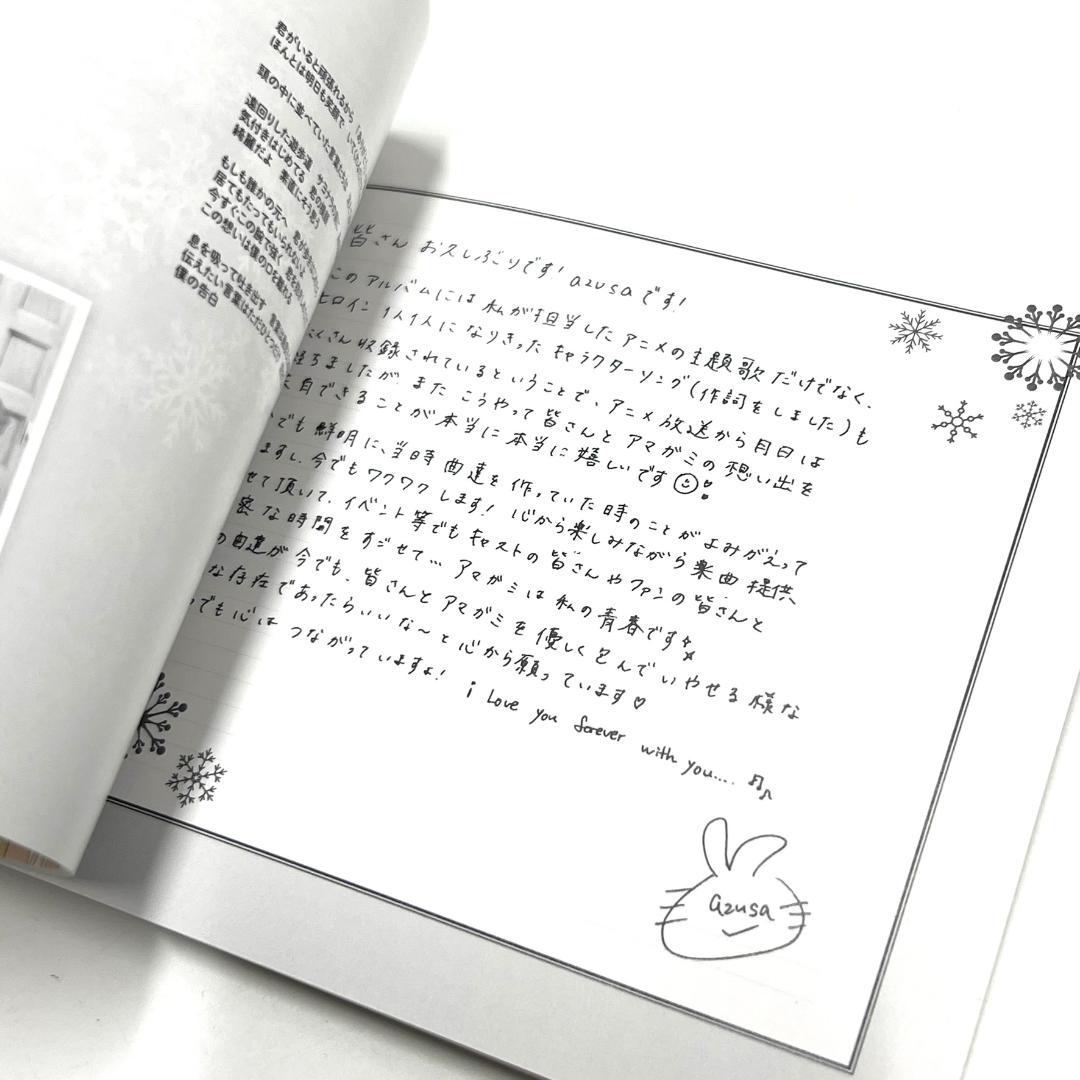 君がいると頑張れるから
ほんとは明日も笑顔で
頭の中に並べていた言葉たちは
遠回りした遊歩道
気付きはじめてる 君の
綺麗だよ 素直にそう思う
もしも誰かの元へ
居てもたってもいられないよ
今すぐこの腕で強く
この想いは僕の心を
息を吸って吐き出す
伝えたい言葉はただひとつだけ
僕の告白
皆さん お久しぶりです! azusaです!
このアルバムには 私が担当したアニメの主題歌だけでなく、
ヒロイン1人1人になりきったキャラクターソング(作詞をしました)も
たくさん収録されているということで、アニメ放送から月日は
経ちましたが、また こうやって皆さんとアマガミの想い出を
できることが本当に本当に嬉しいです
でも鮮明に、当時曲達を作っていた時のことがよみがえって
ますし、今でもワクワクします! 心から楽しみながら楽曲提供
せて頂いて、イベント等でもキャストの皆さんやファンの皆さんと
密な時間をすごせて… アマガミは私の青春です
の曲達が今でも、皆さんとアマガミを優しく包んでいやせる様な
な存在であったらいいな〜と心から願っています♡
つでも心は つながっていますよ! i Love you forever with you.... ♫♪
azusa